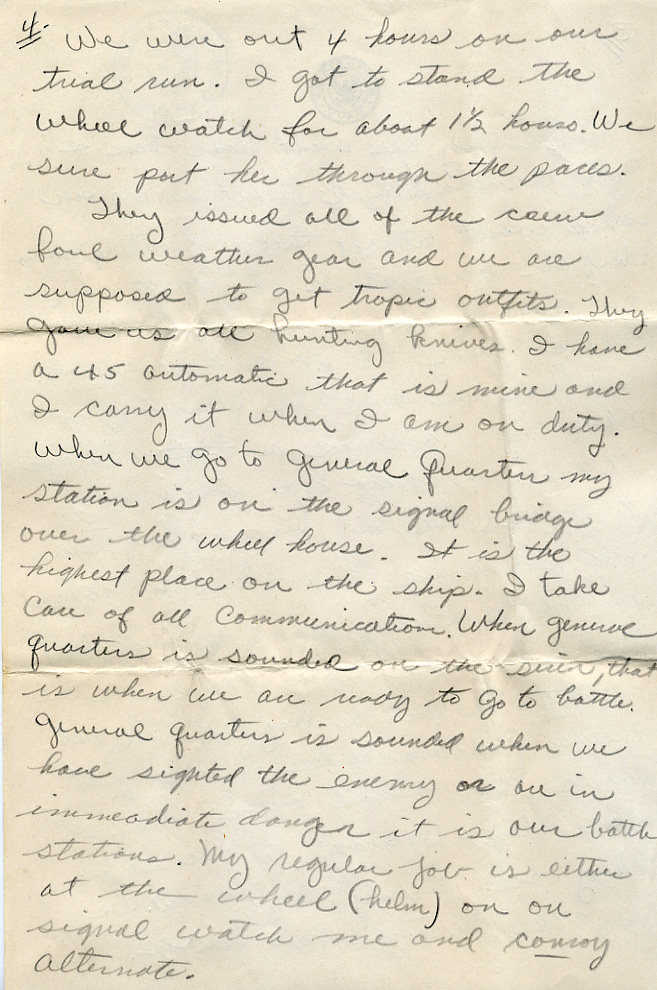 4.
We were out 4 hours on our
trial run. I got to stand the
wheel watch for about 1½ hours. We
sure put her through the paces.
They issued all of the crew
foul weather gear and we are
supposed to get tropic outfits. They
gave us all hunting knives. I have
a 45 automatic that is mine and
I carry it when I am on duty.
When we go to general quarters my
station is on the signal bridge
over the wheel house. It is the
highest place on the ship. I take
care of all communication. When general
quarters is sounded on the siren, that
is when we are ready to go to battle.
General quarters is sounded when we
have sighted the enemy or are in
immeadiate danger it is our battle
stations. My regular job is either
at the wheel (helm) on on
signal watch me and
alternate.